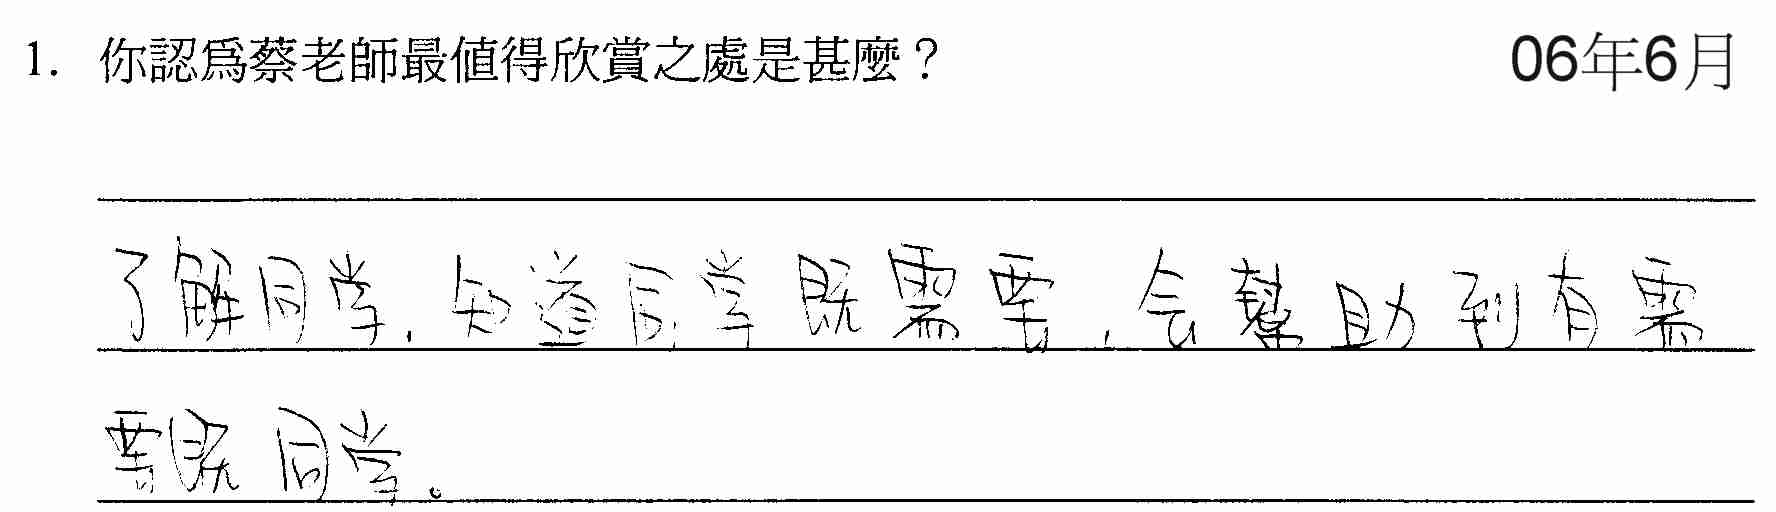 1. 你認爲蔡老師最值得欣賞之處是甚麼？ 06年6月
了解同学，知道同学既需要，会幫助到有需
要既同学。